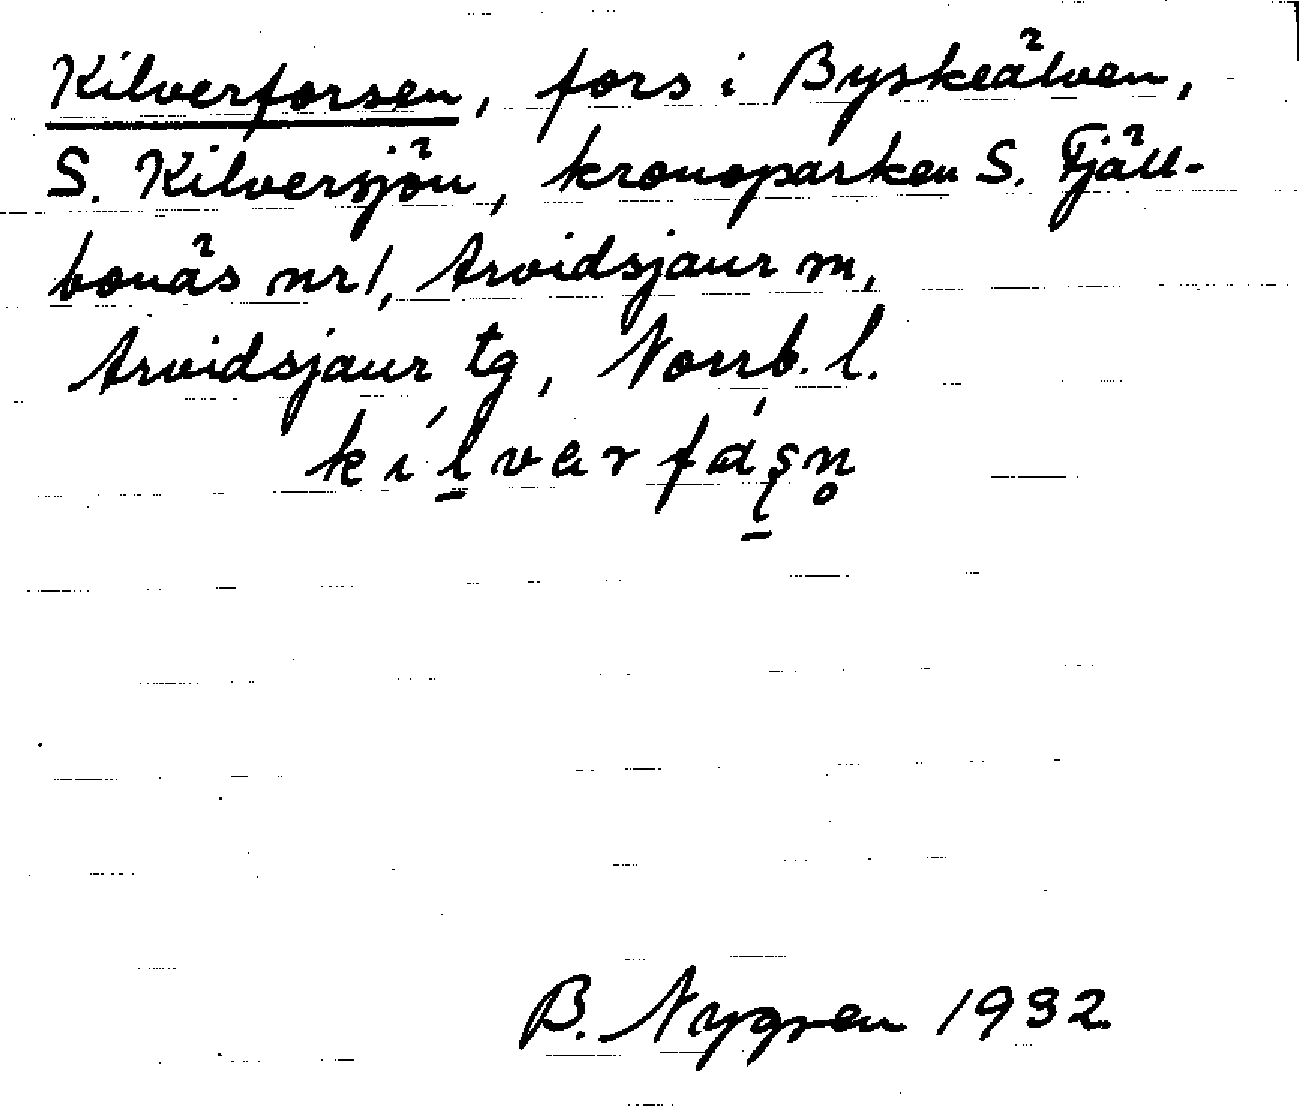 Kilverforsen, fors i Byskeälven,
S. Kilversjön, kronoparken S. Fjäll-
bonäs nr 1, Arvidsjaur m,
Arvidsjaur tg, Norrb. l.
B. Nygren 1932